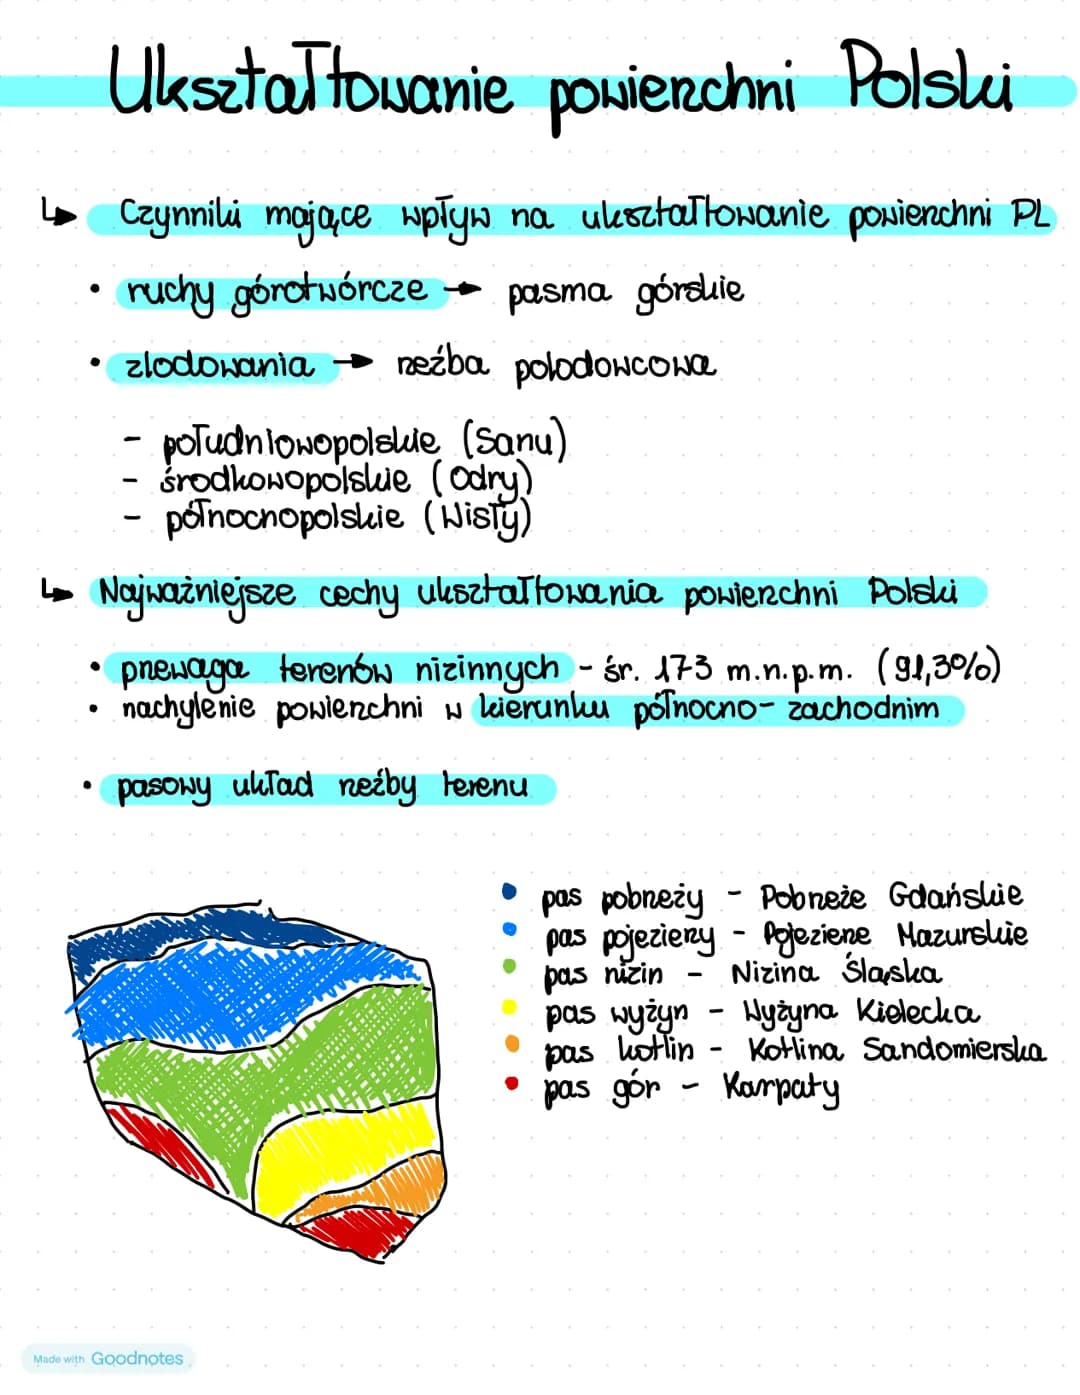 Ukształtowanie powierzchni Polski
↳ Czynniki mające wpływ na ukształtowanie powierzchni PL
• ruchy górotwórcze → pasma górskie
• zlodowania → rzeźba polodowcowa
- południowopolskie (Sanu)
- środkowopolskie (Odry)
- północnopolskie (Wisły)
↳ Najważniejsze cechy ukształtowania powierzchni Polski
• przewaga terenów nizinnych - śr. 173 m.n.p.m. (91,3%)
• nachylenie powierzchni w kierunku północno-zachodnim
• pasowy układ rzeźby terenu
• pas pobrzeży - Pobrzeże Gdańskie
• pas pojezierzy - Pojezierze Mazurskie
• pas nizin - Nizina Śląska
• pas wyżyn - Wyżyna Kielecka
• pas kotlin - Kotlina Sandomierska
• pas gór - Karpaty
Made with Goodnotes